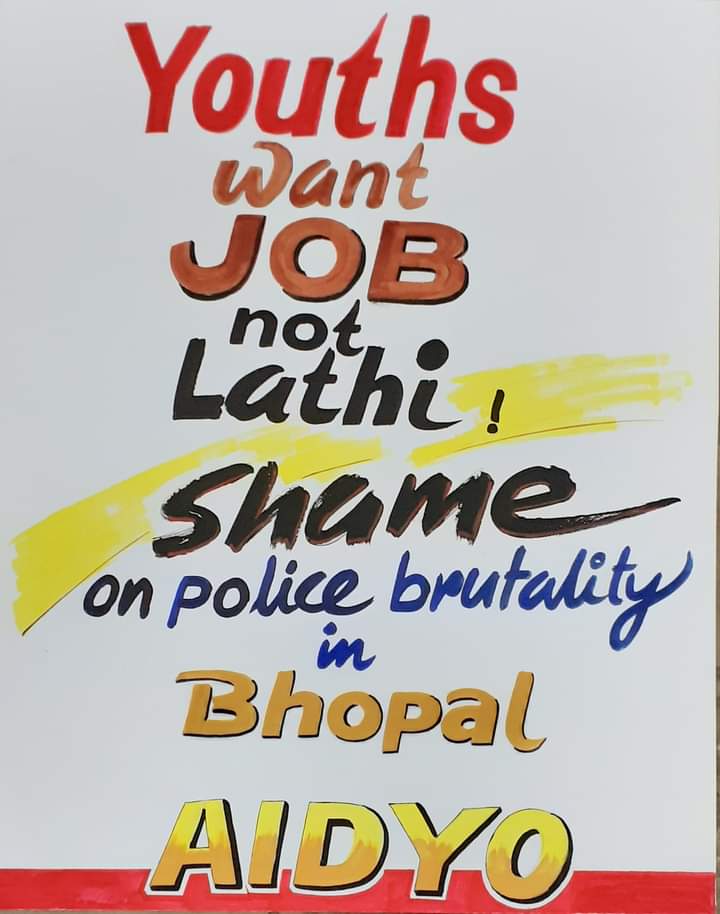 Youths
want
JOB
not
Lathi !
Shame
on police brutality
in
Bhopal
AIDYO